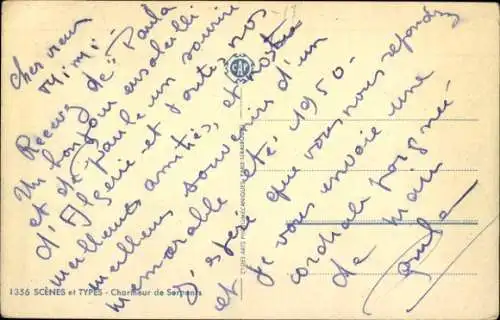 Cher vieux
Mimi
Recevez de Paula
Un bonjour ensoleillé
et de Paule un sourire
d'Algérie et toutes nos
meilleures amitiés, et notre
meilleur souvenir d'un
mémorable été 1950 -
J'espère que vous nous répondrez
et je vous envoie une
cordiale poignée
de main
Paula
CAP
CIE DES ARTS PHOTOMÉCANIQUES
1356 SCÈNES et TYPES - Charmeur de Serpents